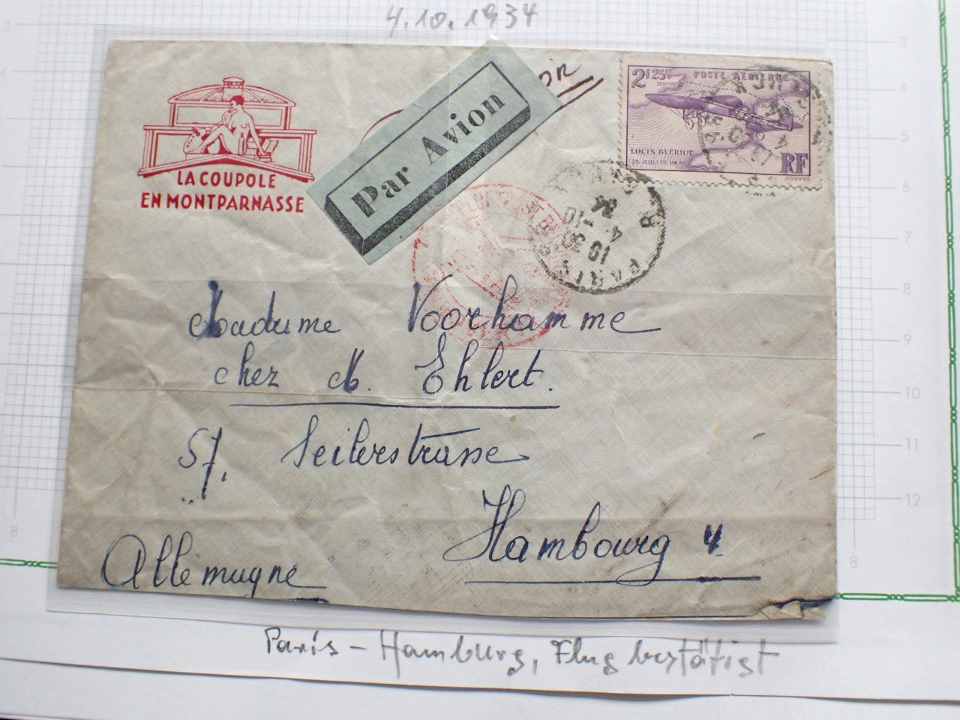 4.10.1934
LA COUPOLE
EN MONTPARNASSE
Par Avion
2F25
POSTE AÉRIENNE
LOUIS BLÉRIOT
RF
PARIS
10 30
4 -10
34
Madame Voorhamme
chez M. Ehlert.
57, Seilerstrasse
Hambourg 4
Allemagne
Paris - Hamburg, Flug bestätigt